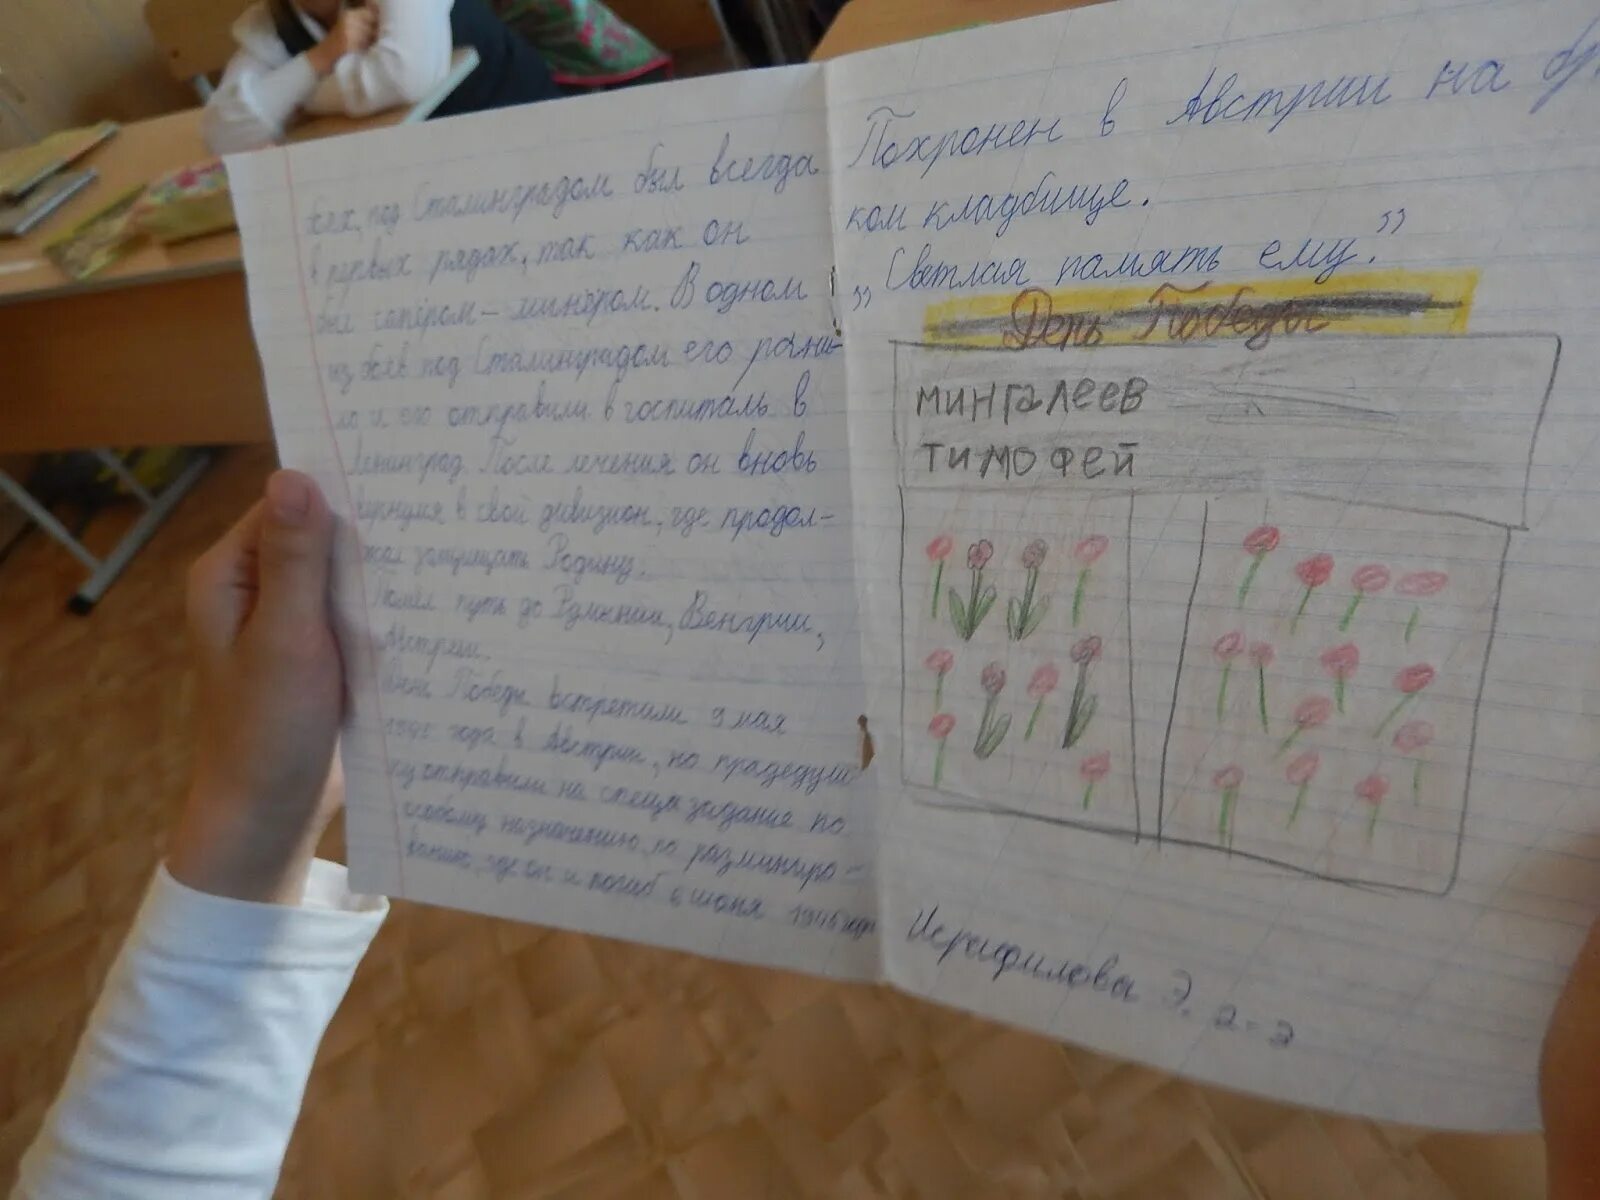 боях, под Сталинградом был всегда
в первых рядах, так как он
был сапёром - минёром. В одном
из боёв под Сталинградом его рани-
ло и его отправили в госпиталь в
Ленинград. После лечения он вновь
вернулся в свой дивизион, где продол-
жал защищать Родину.
Прошёл путь до Румынии, Венгрии,
Австрии.
Победы встретили 9 мая
1945 года в Австрии, но прадедуш
ку отправили на спецзадание по
особому назначению, по разминиро-
ванию, где он и погиб 6 июня 1945 года
Похронен в Австрии на бр.
ком кладбище.
„Светлая память ему."
День Победы
мингалеев
тимофей
Исрафилова Э. 2-Э